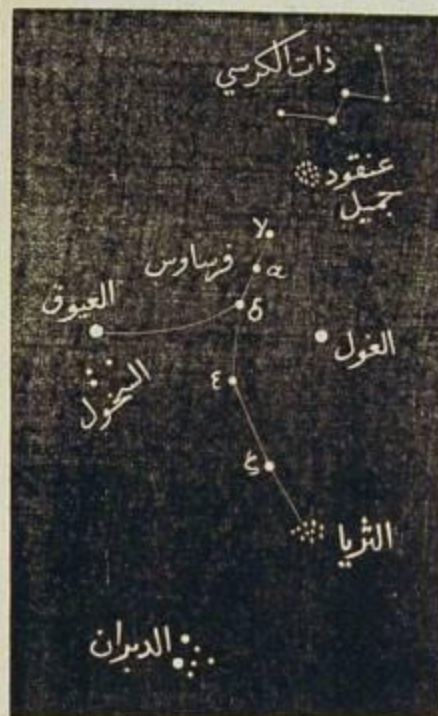 ذات الكرسي
عنقود
جميل
γ
فرساوس
α
العيوق
δ
الغول
السخول
ε
ζ
الثريا
الدبران